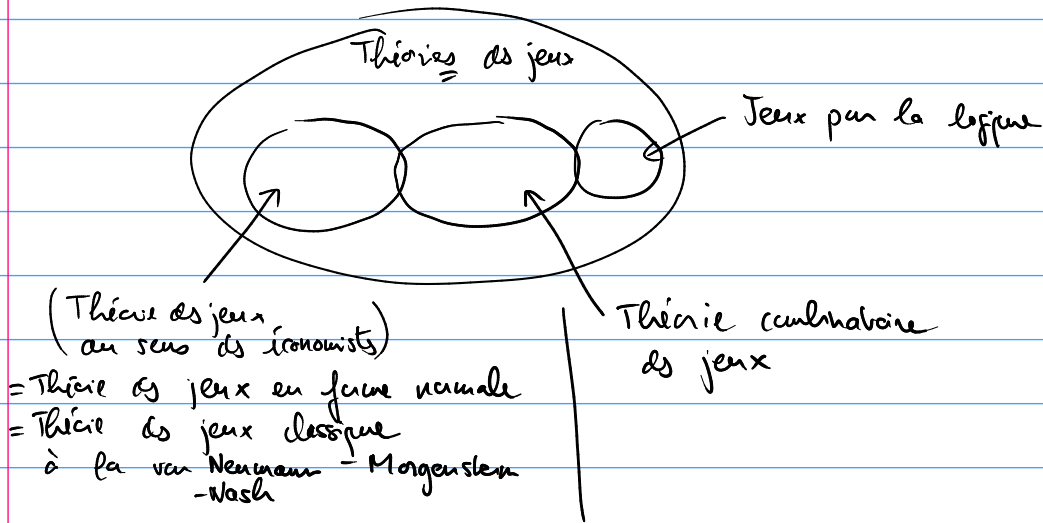 Théories des jeux
Jeux pour la logique
(Théorie des jeux
au sens des économistes)
= Théorie des jeux en forme normale
= Théorie des jeux classique
à la von Neumann - Morgenstern
- Nash
Théorie combinatoire
des jeux